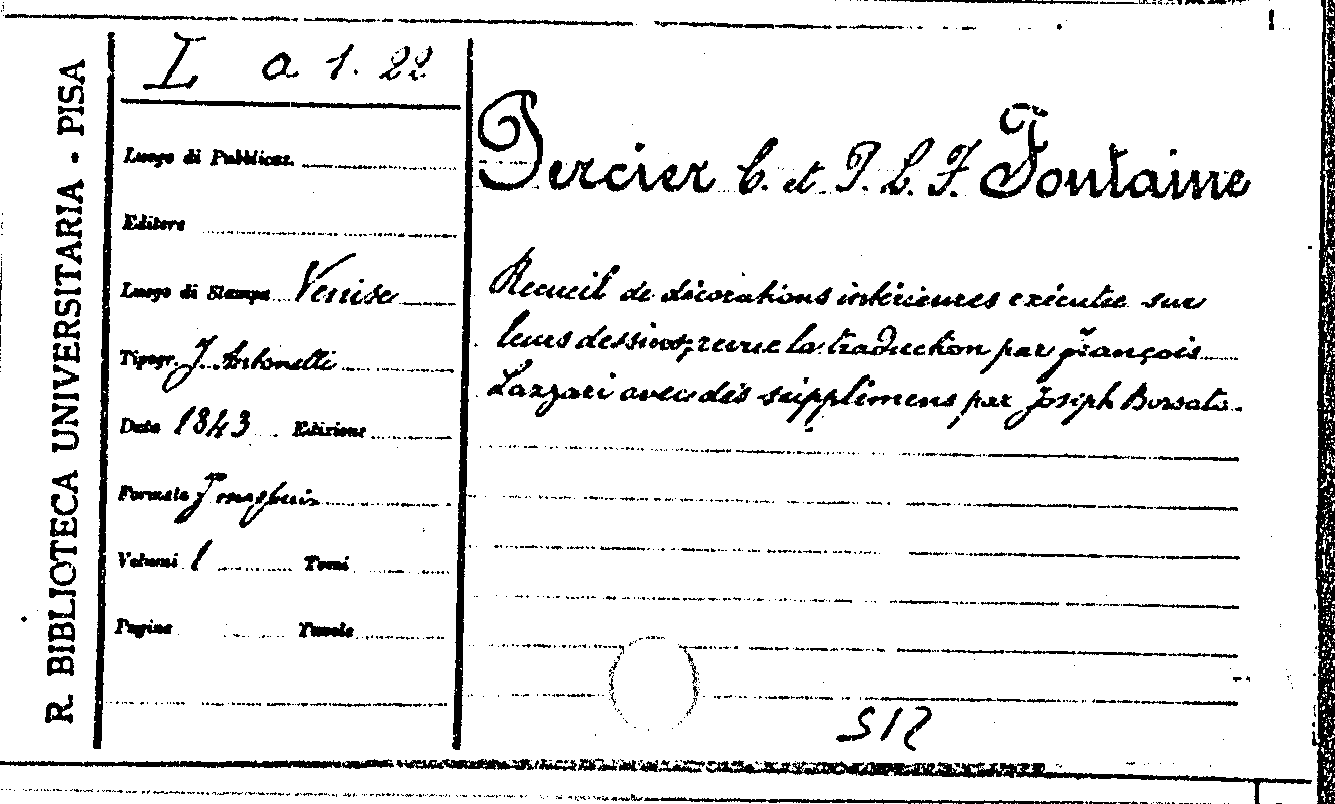 R. BIBLIOTECA UNIVERSITARIA - PISA
I a 1. 22
Luogo di Pubblicaz.
Editore
Luogo di Stampa Venise
Tipogr. J. Antonelli
Data 1843 Edizione
Formato
Volumi 1 Tomi
Pagine Tavole
Percier C. et P. L. F. Fontaine
Recueil de décorations intérieures exécutée sur
leurs dessins, revue la traduction par François
Lazzari avec des supplémens par Joseph Borsato.